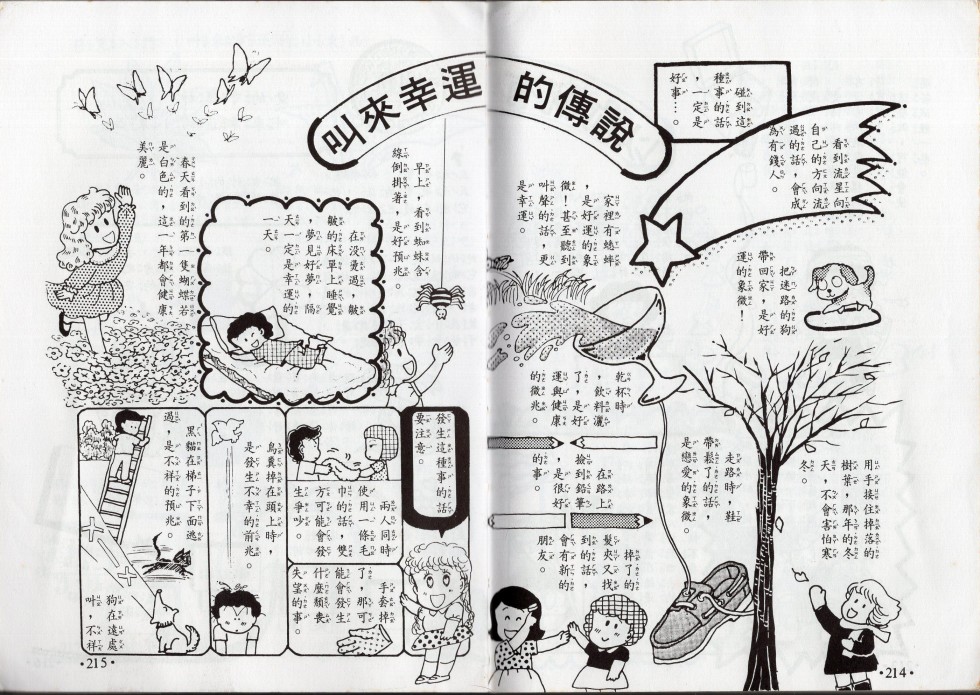 叫來幸運的傳說
碰到這
種事的話
，一定是
好事…。
看到流星向
自己的方向流
過的話，會成
為有錢人。
把迷路的狗
帶回家，是好
運的象徵！
家裡有蟋蟀
，是好運的象
徵！甚至聽到
叫聲的話，更
是幸運。
乾杯時
，飲料灑
了，是好
運與健康
的徵兆。
用手接住掉落的
樹葉，那年的冬
天，不會害怕寒
冬。
走路時，鞋
帶鬆了的話，
是戀愛的象徵。
在路上
撿到鉛筆
，是很好
的事。
掉了的
髮夾又找
到的話，
會有新的
朋友。
·214·
早上，看到蜘蛛含
線倒掛著，是好預兆。
在沒燙過，皺
皺的床單上睡覺
，夢見好夢，隔
天一定是幸運的
一天。
春天看到的第一隻蝴蝶若
是白色的，這一年都會健康
美麗。
發生這種事的話
要注意。
兩人同時
使用一條毛
巾的話，雙
方可能會發
生爭吵。
手套掉
了，那可
能會發生
什麼頹喪
失望的事。
鳥糞掉在頭上時，
是發生不幸的前兆。
黑貓在梯子下面逃
過，是不祥的預兆。
狗在遠處
叫，不祥
·215·